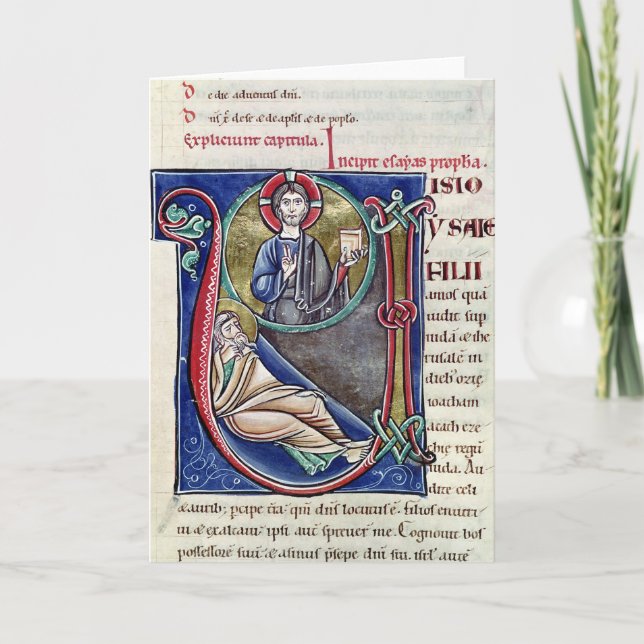 De die adventus dñi.
Dñs ē
Expliciunt capitula.
Incipit esayas propha.
ISIO
YSAIE
FILII
amos quā
uidit sup
iudā & ihe
rusalē in
dieb; ozię
ioacham
acach eze
chię regū
iuda. Au
dite celi
& aurib; pcipe t'ra. qm dñs locutus ē. filios enutri
ui & exaltaui. ipsi autē spreuer' me. Cognouit bos
possessorē suū & asinus p̄sepe dñi sui. isr'l autē